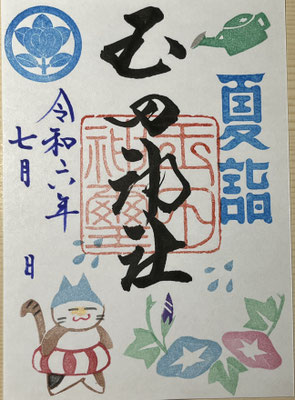 夏詣
玉田神社
玉田
神璽
令和六年
七月 日